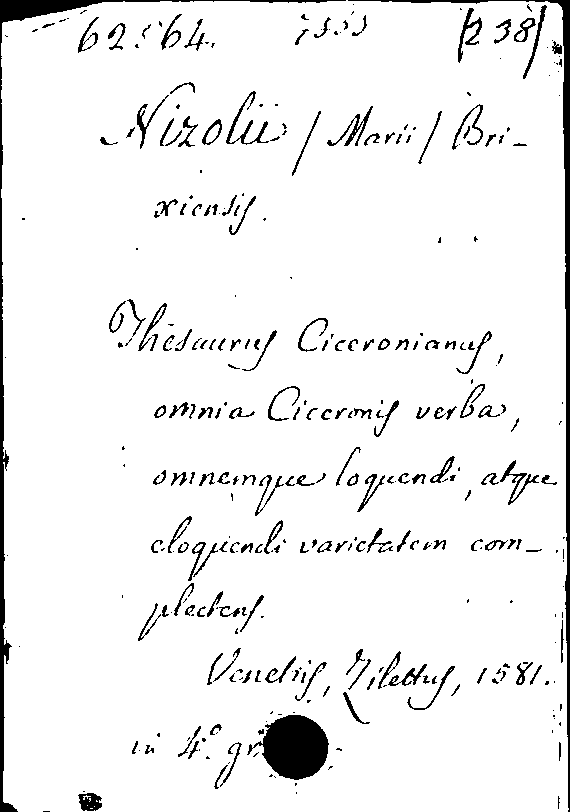 62564. 7555 [238]
Nizolii / Marii / Bri-
xiensis.
Thesaurus Ciceronianus,
omnia Ciceronis verba,
omnemque loquendi, atque
eloquendi varietatem com-
plectens.
Venetiis, Zilettus, 1581.
in 4.º gr.